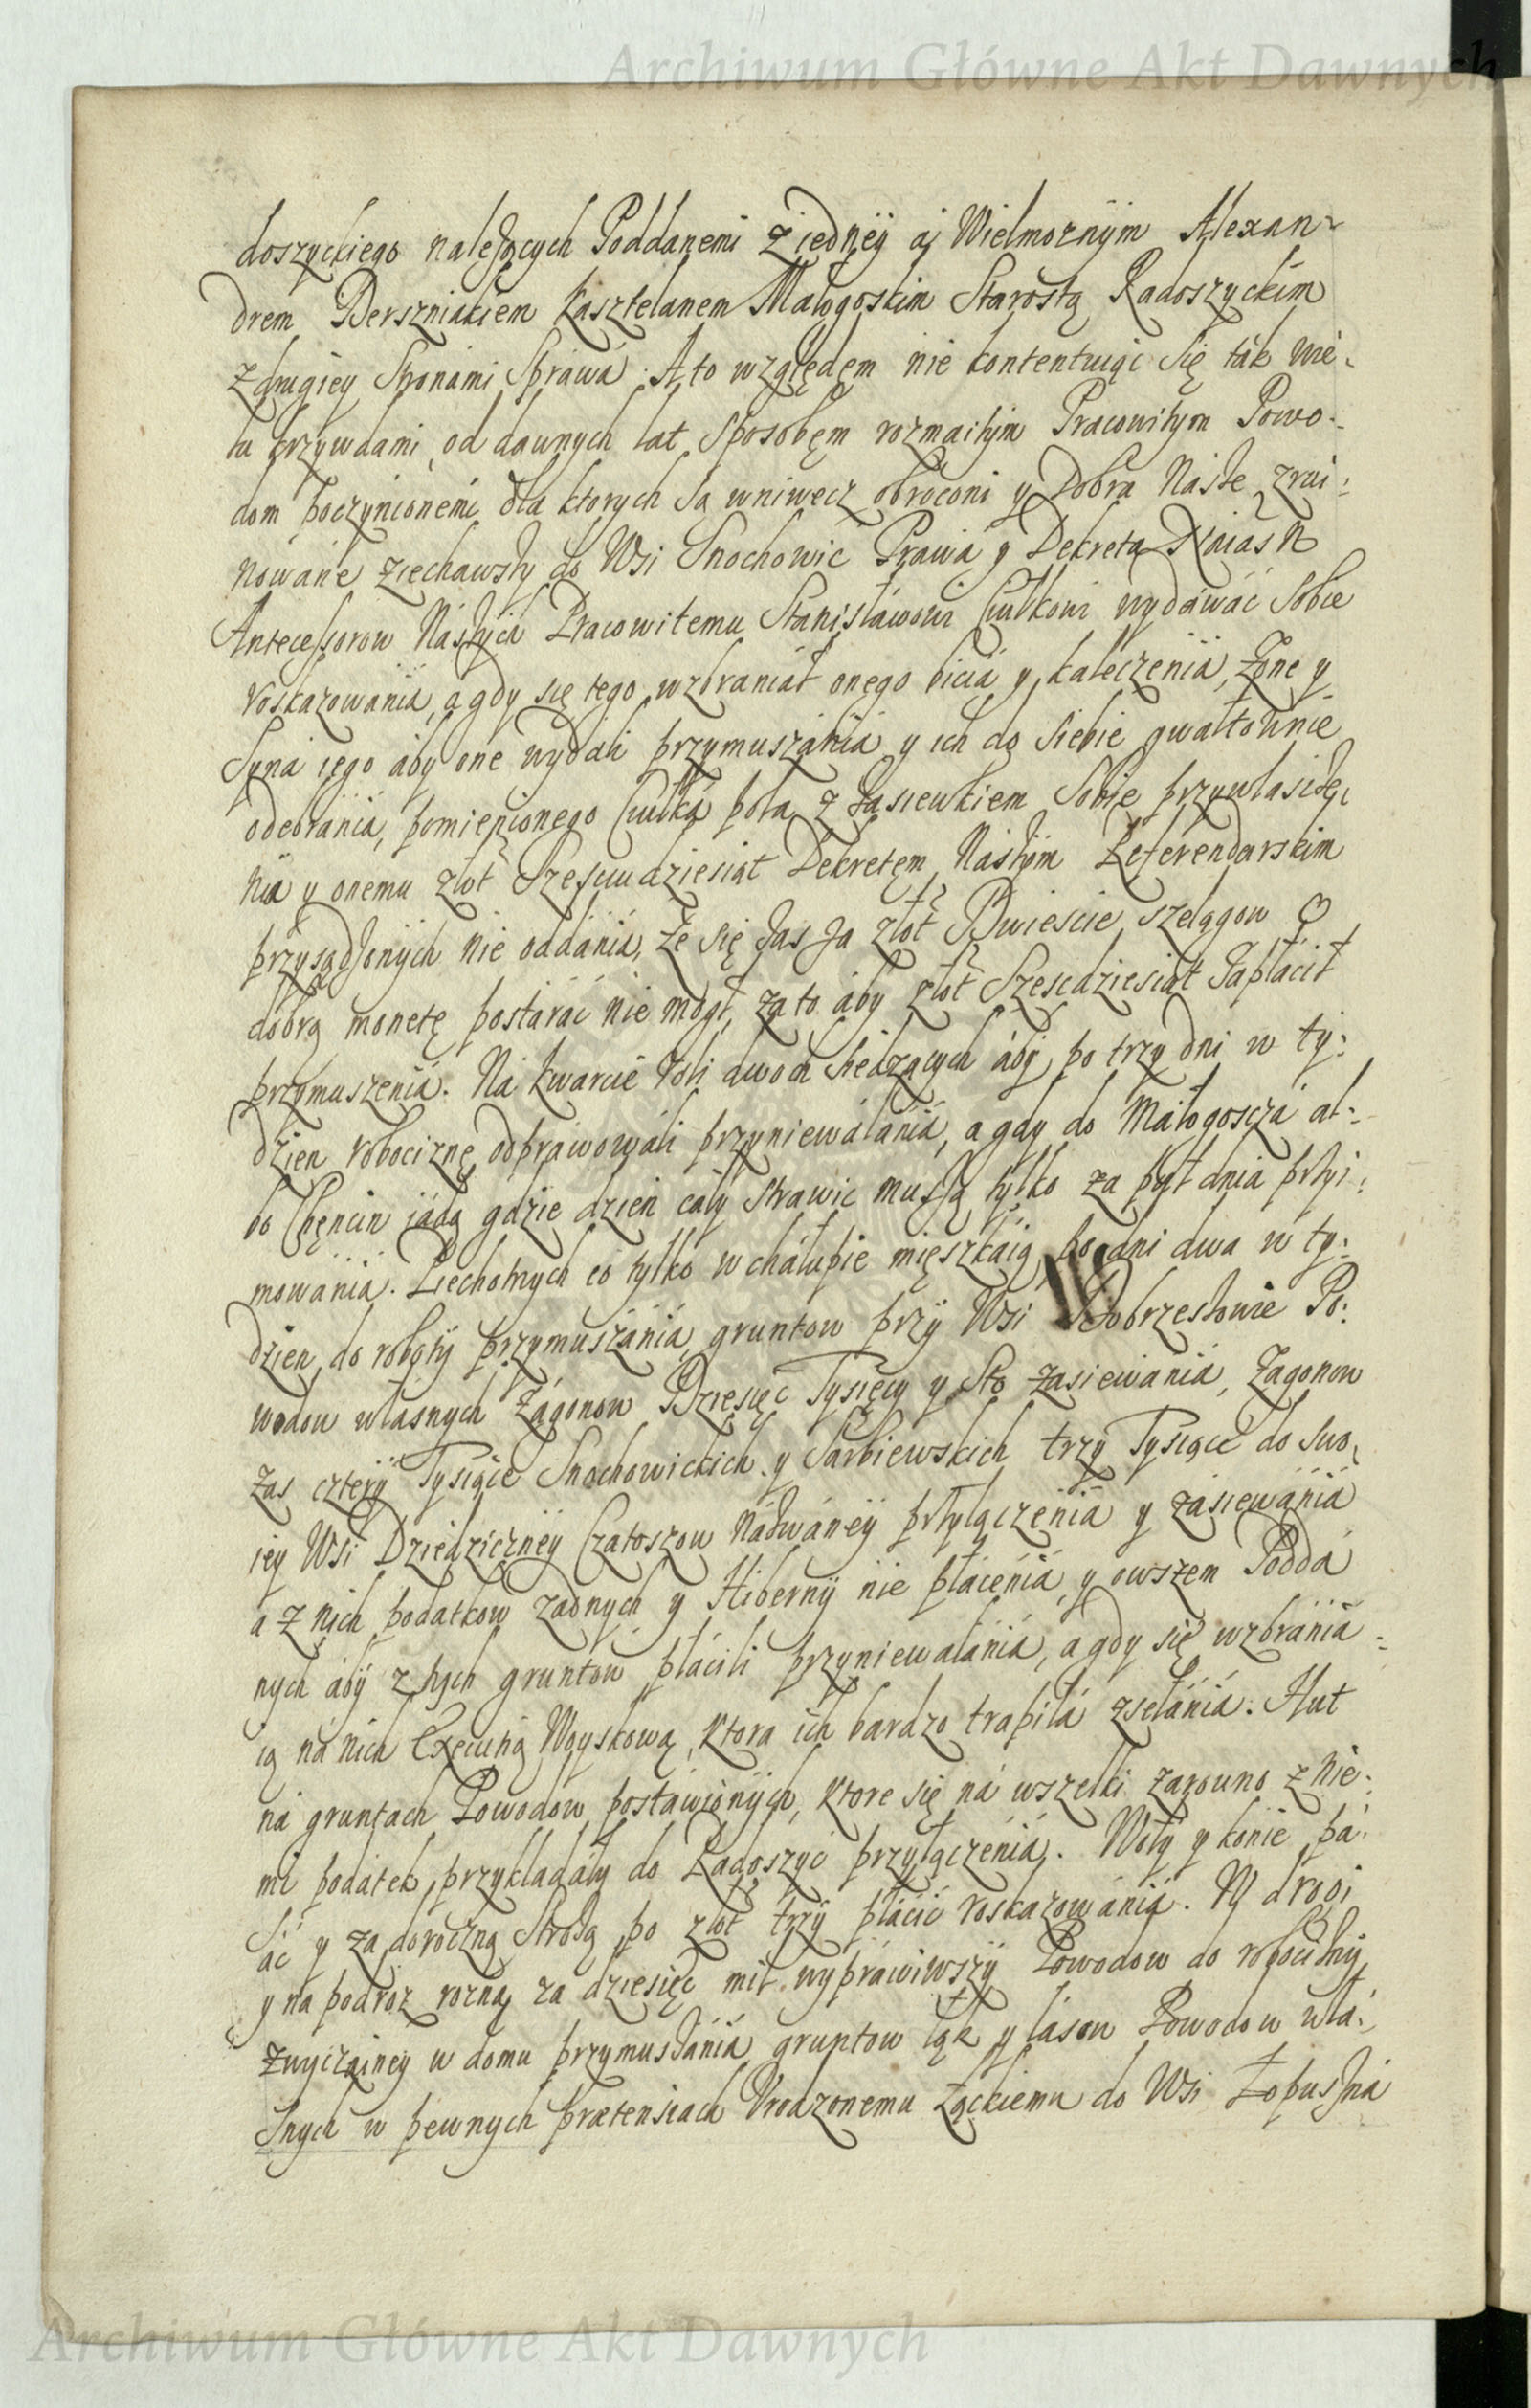 Archiwum Główne Akt Dawnych
doszyckiego należących Poddanemi z iedneÿ aj Wielmożnÿm Alexan-
drem Berszniakiem Kasztelanem Małogoskim Starostą Radoszyckim
z drugiey Stronami Sprawá. A to względęm nie kontentuiąc się ták wie-
lu krzywdami od dawnych lat sposobęm rozmaitym Pracowitym Powo-
dom poczynionemi dla ktorych są wniwecz obroceni y Dobra Násze zrui:
nowáne ziechawszy do Wsi Snochowic Prawá y Dekretá Náiásn
Antecessorow Nászych Pracowitemu Stanisławowi Ciułkowi wydáwáć sobie
roskazowániá, a gdy się tego wzbraniáł onego biciá y kaleczeniá, Żonę y
Syná iego áby one wydáli przymuszániá y ich do siebie gwałtownie
odebrániá, pomienionego Ciułká polá z Zasiewkiem sobie przywłaszcze
niá y onemu złot Szesciudziesiąt Dekretęm Nászym Referendarskim
przysądzonÿch nie oddániá, że się zas za złot Dwiescie szelągow
dobrą monetę postáráć nie mogł, za to áby złot Szescdziesiąt zapłáćił
przymuszeniá. Ná kwarcie Roli dwoch siedzących áby po trzy dni w tÿ:
dzien robociznę odprawowáli przyniewálániá, a gdy do Małogosczá al:
bo Chęncin jádą gdzie dzien cały strawic muszą tylko za puł dnia przyi:
mowániá. Piechotnych co tylko w cháłupie mięszkáią po dni dwa w ty:
dzien do robotÿ przymuszániá, gruntow przÿ Wsi Dobrzeszowie Po:
wodow własnych Zágonow Dziesięć Tysięcy y Sto zasiewániá, Zagonow
zas czterÿ Tysiące Snochowickich y Sarbiewskich trzy Tysiące do swo
iey Wsi DziedziczneÿCzałoszow názwáneÿ przyłączeniá y zásiewániá
a z nich podatkow żadnych y Hibernÿ nie płáceniá, y owszem Podda
nych ábÿ z tych gruntow płáćili przyniewalániá, a gdy się wzbrániá-
ią ná nich Execuÿą Woyskową, ktora ich bardzo trapiłá zsełániá. Hut
ná gruntách Powodow postáwionÿch, ktore się ná wszelki zarowno z nie:
mi podátek przykładáły do Radoszyć przyłączeniá. Woły y konie pá:
sć y za doroczną Strożą po złot trzÿ płáćić roskazowániá. W drogi
y na podroż rożną za dziesięć mil wypráwiwszÿ Powodow do robociznÿ
zwyczáiney w domu przymuszániá gruntow łąk y lásow Powodow włá:
snych w pewnych prætensiach Urodzonemu Łąckiemu do Wsi Łopuszná
Archiwum Główne Akt Dawnych